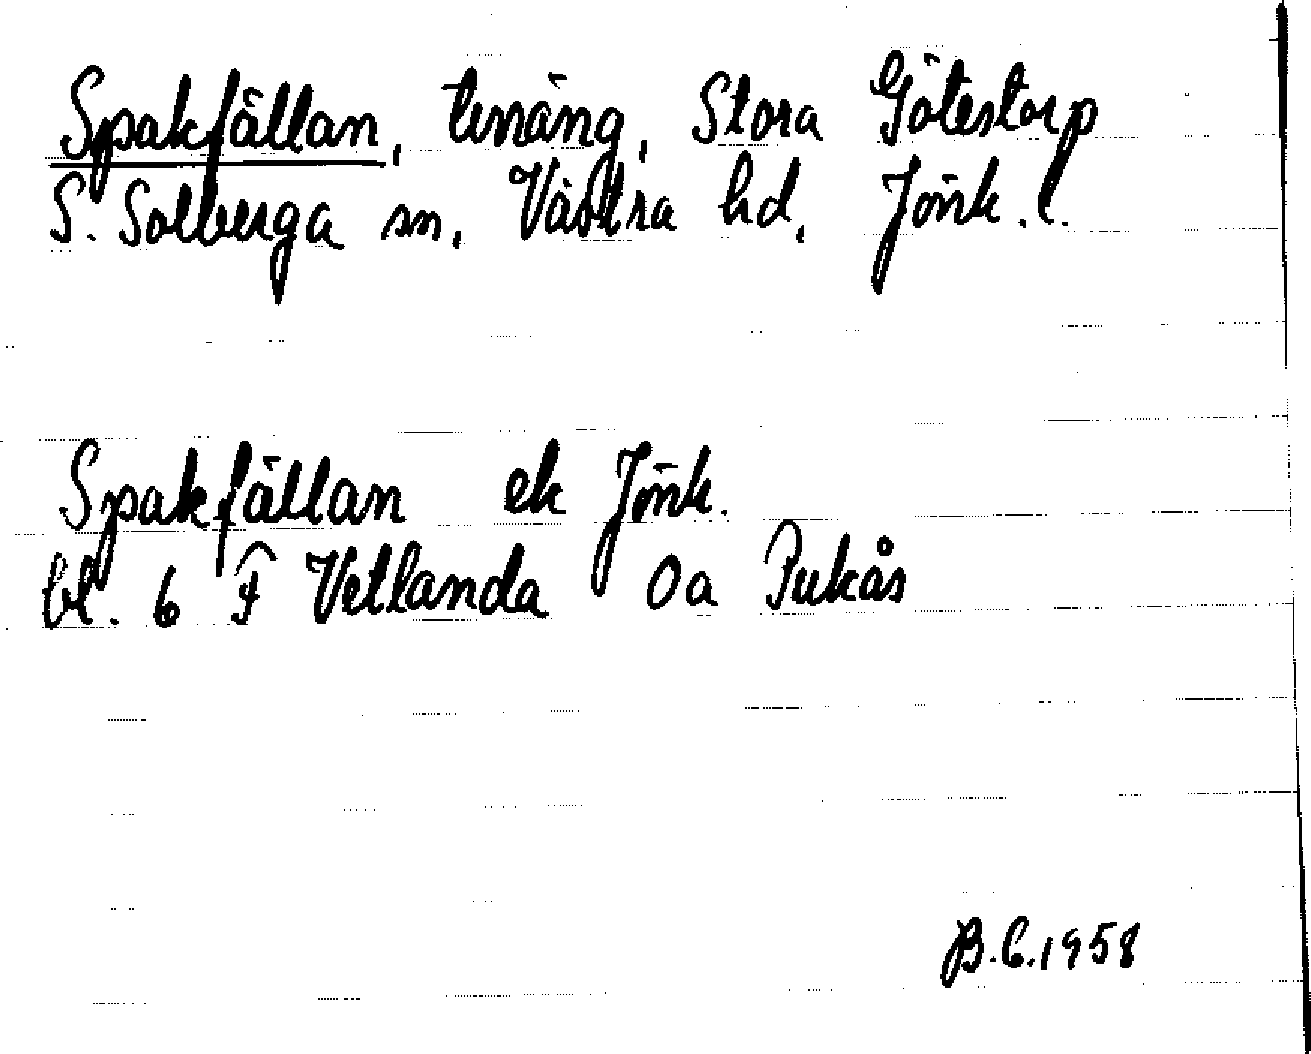 Spakfällan, terräng, Stora Götestorp
S. Solberga sn, Västra hd, Jönk. l.
Spakfällan ek Jönk.
bl. 6 F Vetlanda Oa Pukås
B.C.1958